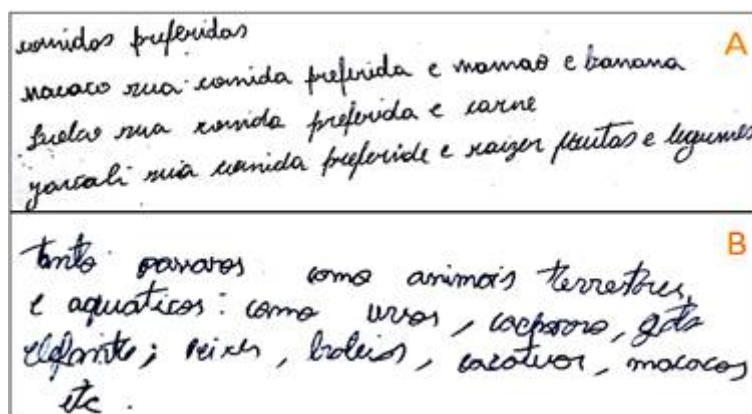 A
comidas preferidas
macaco sua comida preferida e mamao e banana
sua comida preferida e carne
sua comida preferide e raizer frutas e legumes
B
tanto como animais terrestres,
e aquáticos: como ursos, cachorro, gato
elefante; peixes, baleias, macacos
etc.